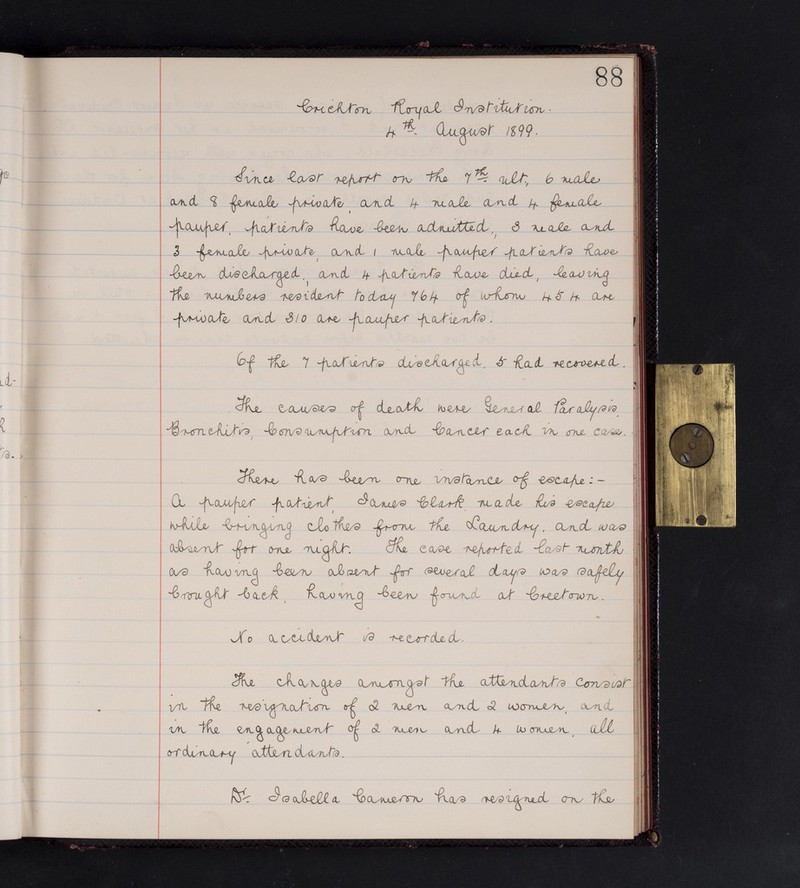 88
Crichton Royal Institution.
4th. August 1899.
Since last report on the 7th ult, 6 male
and 8 female private, and 4 male and 4 female
pauper, patients have been admitted, 3 male and
3 female private, and 1 male pauper patients have
been discharged, and 4 patients have died, leaving
the numbers resident today 764 of whom 454 are
private and 310 are pauper patients.
Of the 7 patients discharged. 5 had recovered.
The causes of death were General Paralysis,
Bronchitis, Consumption and Cancer each in one case.
There has been one instance of escape:-
A pauper patient, James Clark made his escape
while bringing clothes from the Laundry. and was
absent for one night. The case reported last month
as having been absent for several days was safely
brought back, having been found at Creetown.
No accident is recorded.
The changes amongst the attendants consist
in the resignation of 2 men and 2 women, and
in the engagement of 2 men and 4 women, all
ordinary attendants.
Dr. Isabella Cameron has resigned on the